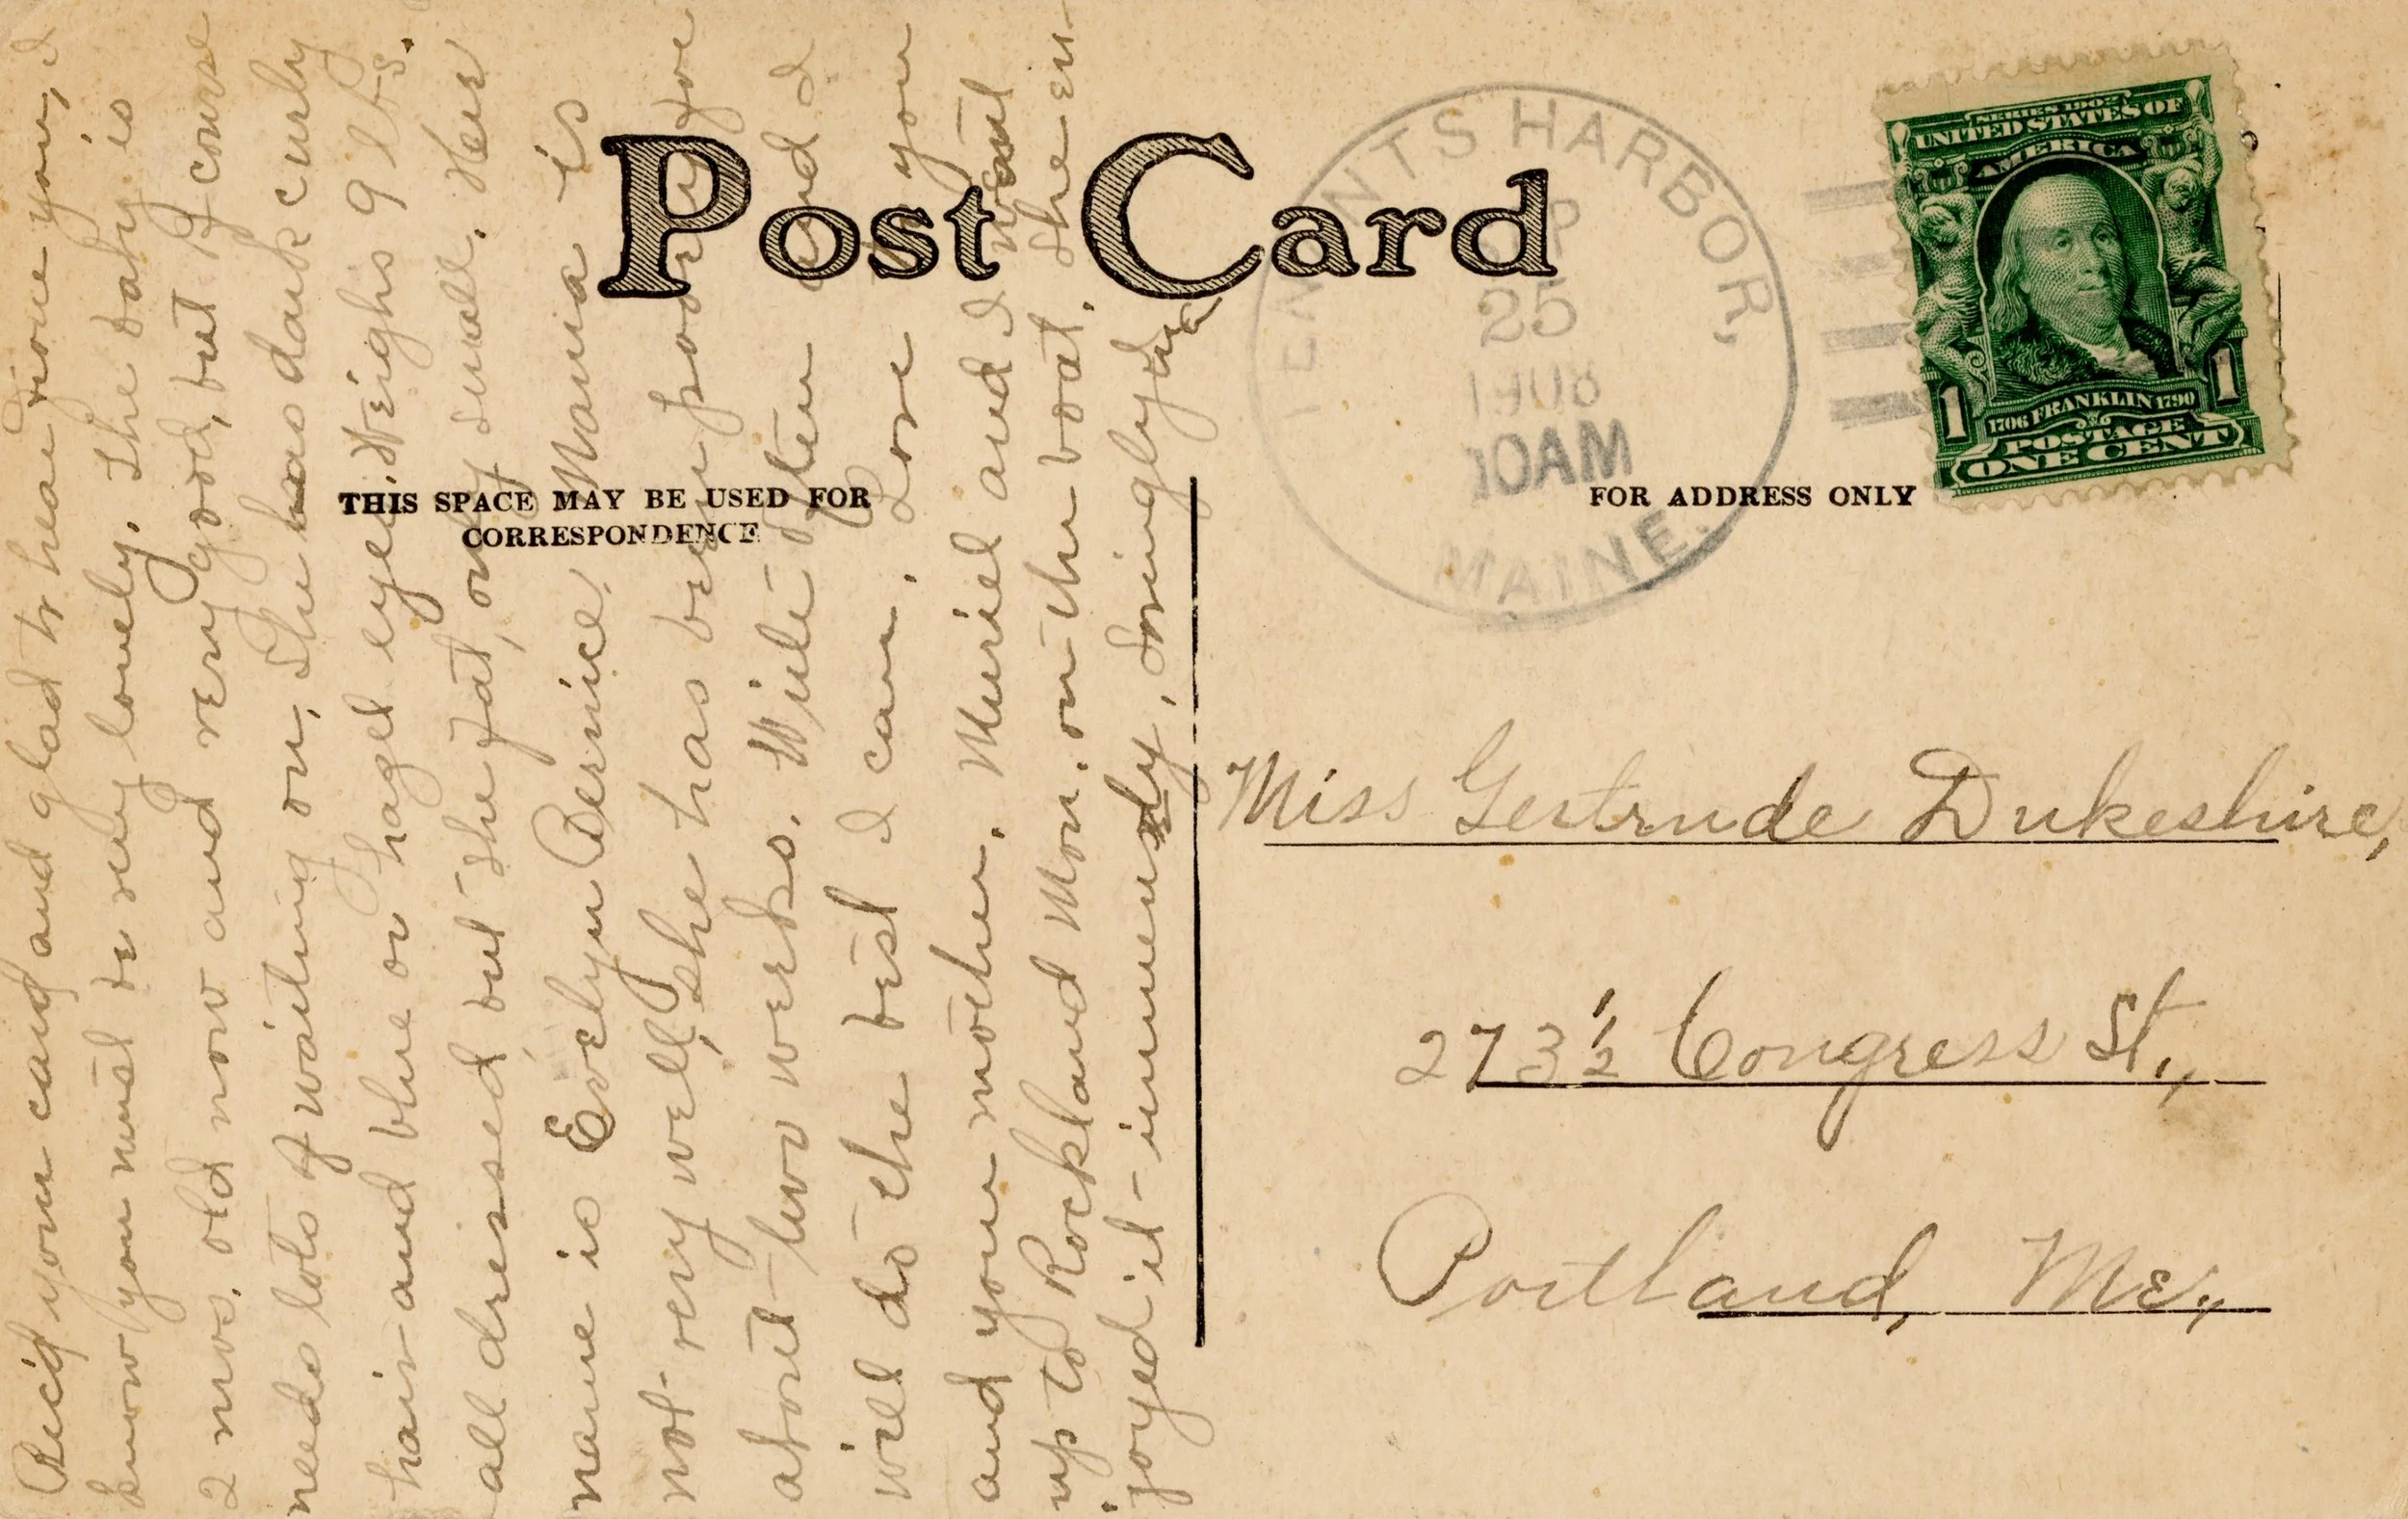 Post Card
THIS SPACE MAY BE USED FOR
CORRESPONDENCE
FOR ADDRESS ONLY
TENANTS HARBOR,
SEP
25
1908
10AM
MAINE.
SERIES 1902
UNITED STATES OF
AMERICA
1706 FRANKLIN 1790
POSTAGE
1 1
ONE CENT
Miss Gertrude Dukeshire,
273 ½ Congress St.,
Portland, Me.,
Rec'd your card and glad to hear from you, I
know you must be very lonely. The baby is
2 mos. old now and very good, but of course
needs lots of waiting on. She has dark curly
hair and blue or hazel eyes. Weighs 9 lbs.
all dressed but she fat, only small. Her
name is Evelyn Bernice. Mama is
not very well, she has been poorly for
about two weeks. Write often and I
will do the best I can. Love to you
and your mother. Muriel and I went
up to Rockland Mon. on the boat. She en-
joyed it immensely. Lovingly